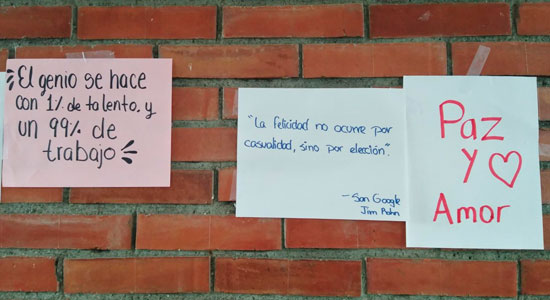 El genio se hace
con 1% de talento, y
un 99% de
trabajo
"La felicidad no ocurre por
casualidad, sino por elección".
— San Google
Jim Rohn
Paz
y ♡
Amor